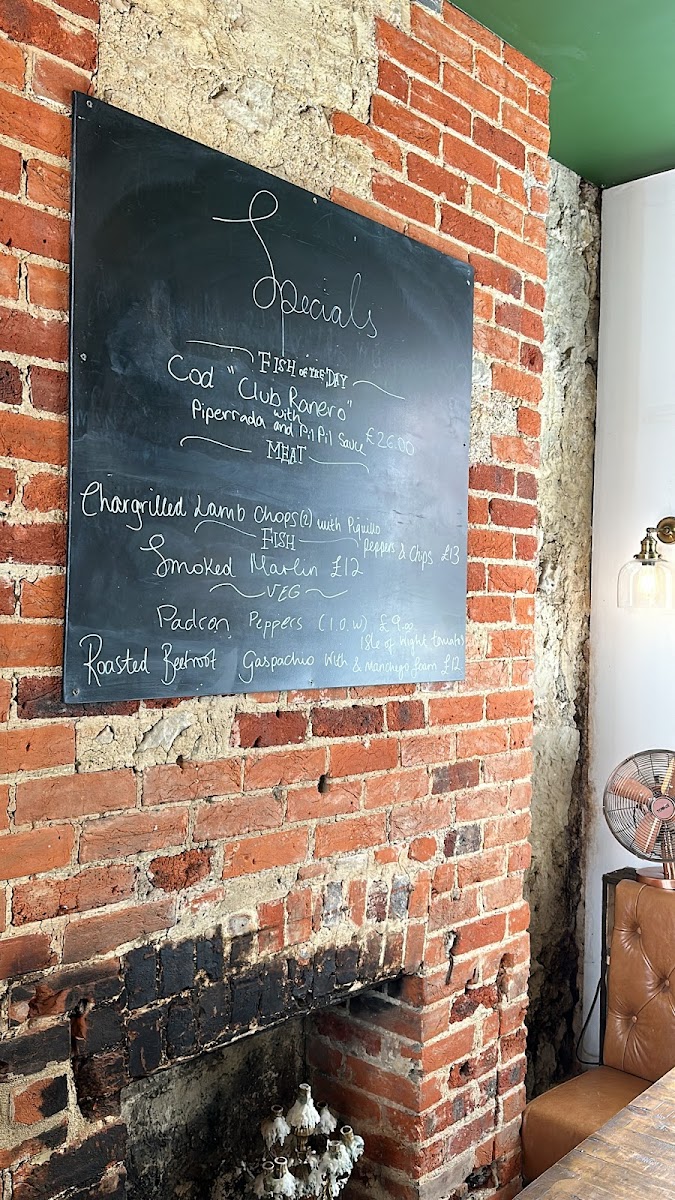 Specials
FISH OF THE DAY
Cod "Club Ranero"
with
Piperrada and Pil Pil Sauce £26.00
MEAT
Chargrilled Lamb Chops (2) with Piquillo
Peppers & Chips £13
FISH
Smoked Marlin £12
VEG
Padron Peppers (I.O.W) £9.00
Isle of wight tomato
Roasted Beetroot Gaspachio with & Manchego foam £12